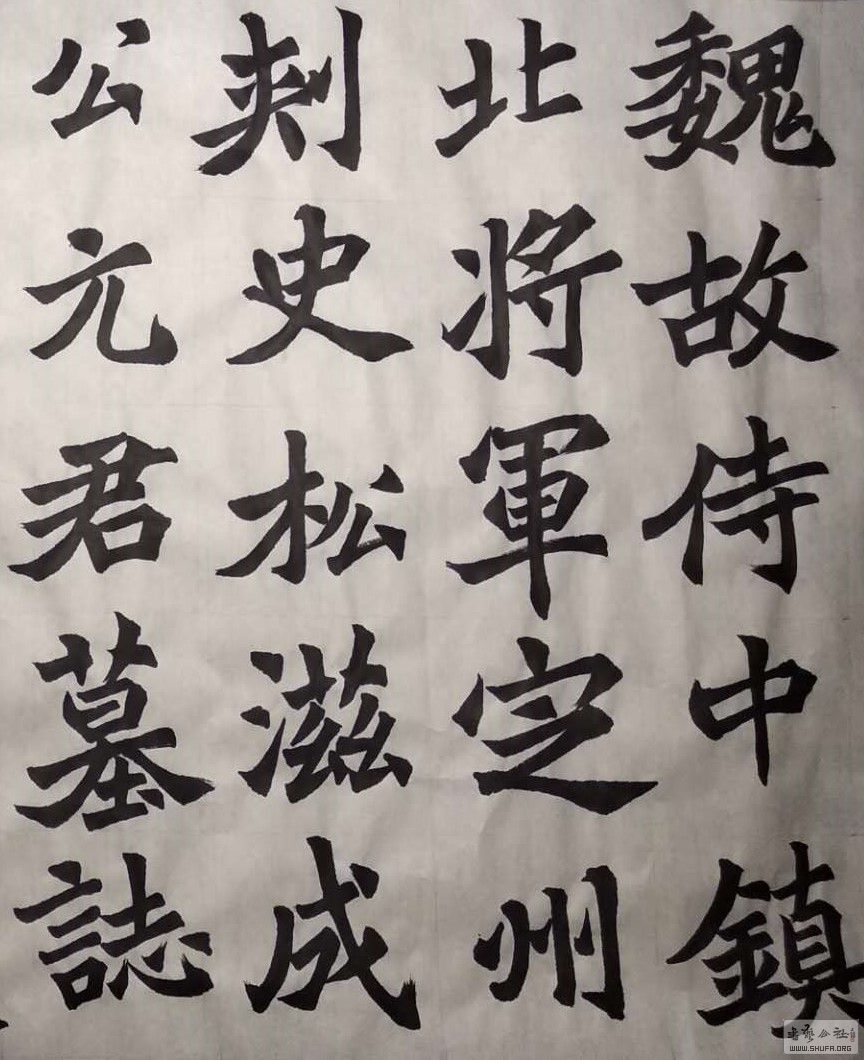 魏故侍中鎮
北將軍定州
刺史松滋成
公元君墓誌
書藝公社
WWW.SHUFA.ORG